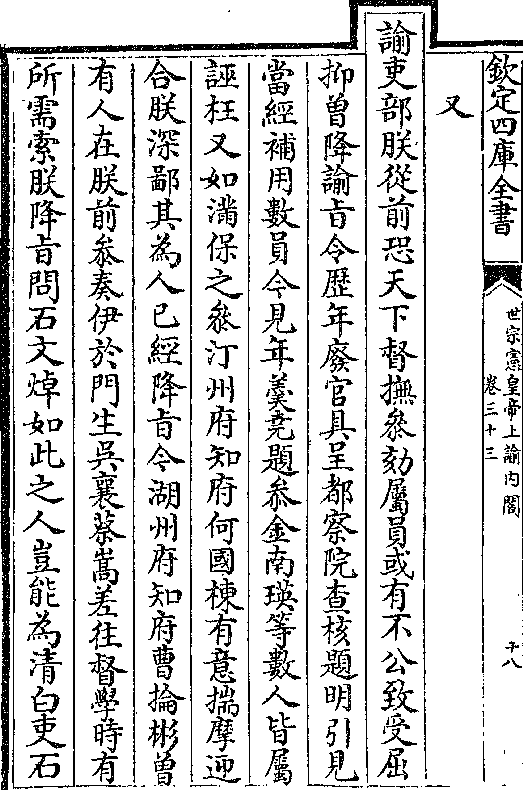 欽定四庫全書
世宗憲皇帝上諭內閣
卷三十三
十八
又
諭吏部朕從前恐天下督撫叅劾屬員或有不公致受屈
抑曾降諭旨令歷年廢官具呈都察院查核題明引見
當經補用數員今見年羹堯題叅金南瑛等數人皆屬
誣枉又如滿保之叅汀州府知府何國棟有意揣摩迎
合朕深鄙其為人已經降旨令湖州府知府曹掄彬曾
有人在朕前叅奏伊於門生吳襄蔡嵩差往督學時有
所需索朕降旨問石文焯如此之人豈能為清白吏石